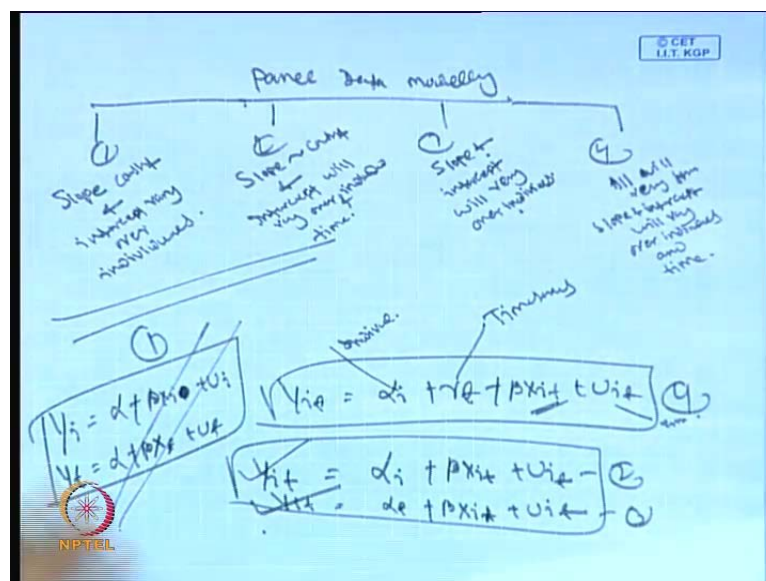 © CET
I.I.T. KGP
Panel Data modelling
①
Slope const
+
intercept vary
over
individuals.
②
Slope ~ const
+
intercept will
vary over individ
+
time.
Slope +
intercept
will vary
over individual
④
All will
vary
slope + intercept
will vary
over individuals
and
time.
①
Yi = α + βXi + Ui
Yt = α + βXt + Ut
Time
Yit = αi + γt + βXit + Uit
Yit = αi + βXit + Uit - ②
Yit = αt + βXit + Uit
NPTEL